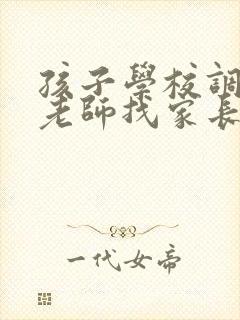 孩子學校調
老師找家長
一代女帝